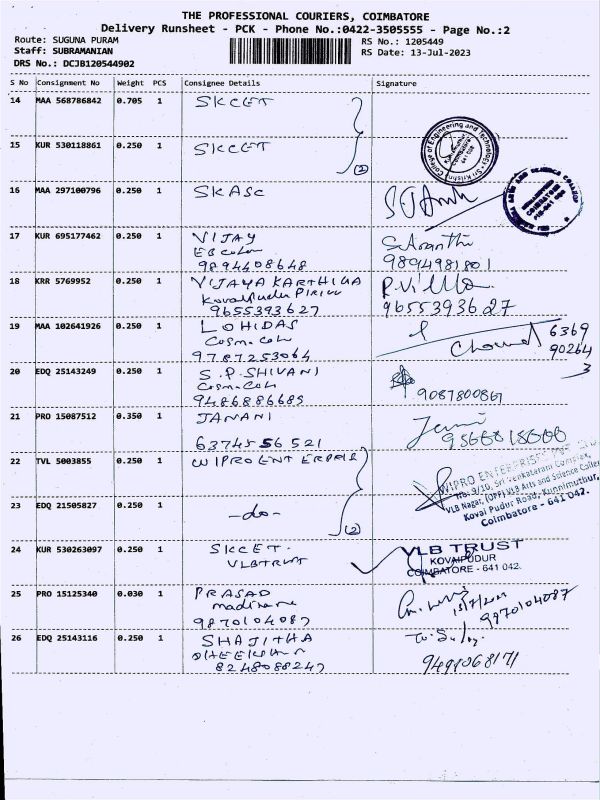 THE PROFESSIONAL COURIERS, COIMBATORE
Delivery Runsheet - PCK - Phone No.:0422-3505555 - Page No.:2
Route: SUGUNA PURAM
RS No.: 1205449
Staff: SUBRAMANIAN
RS Date: 13-Jul-2023
DRS No.: DCJB120544902
S No Consignment No Weight PCS Consignee Details Signature
14 MAA 568786842 0.705 1 SKCET
15 KUR 530118861 0.250 1 SKCET
(2)
16 MAA 297100796 0.250 1 SKASC
17 KUR 695177462 0.250 1 VIJAY
EB
9894408648 9894981801
18 KRR 5769952 0.250 1 VIJAYA KARTHIGA
9655393627 9655393627
19 MAA 102641926 0.250 1 LOHIDAS
6369
90264
3
9787253064
20 EDQ 25143249 0.250 1 S.P.SHIVANI
9486886685 9087800861
21 PRO 15087512 0.350 1 JANANI
6374556521
22 TVL 5003855 0.250 1 WIPRO
WIPRO ENTERPRISES
No: 9/10, Sri Venkateram Complex,
VLB Nagar, (OPP) VLB Arts and Science College
Kovai Pudur Road, Kunnimuthur,
Coimbatore - 641 042.
23 EDQ 21505827 0.250 1 -do-
(2)
24 KUR 530263097 0.250 1 SKCET.
VLBTRUST
VLB TRUST
KOVAIPUDUR
COIMBATORE - 641 042.
25 PRO 15125340 0.030 1 PRASAD
9870104087 9970104087
26 EDQ 25143116 0.250 1 SHAJITHA
8248088247 9491068171